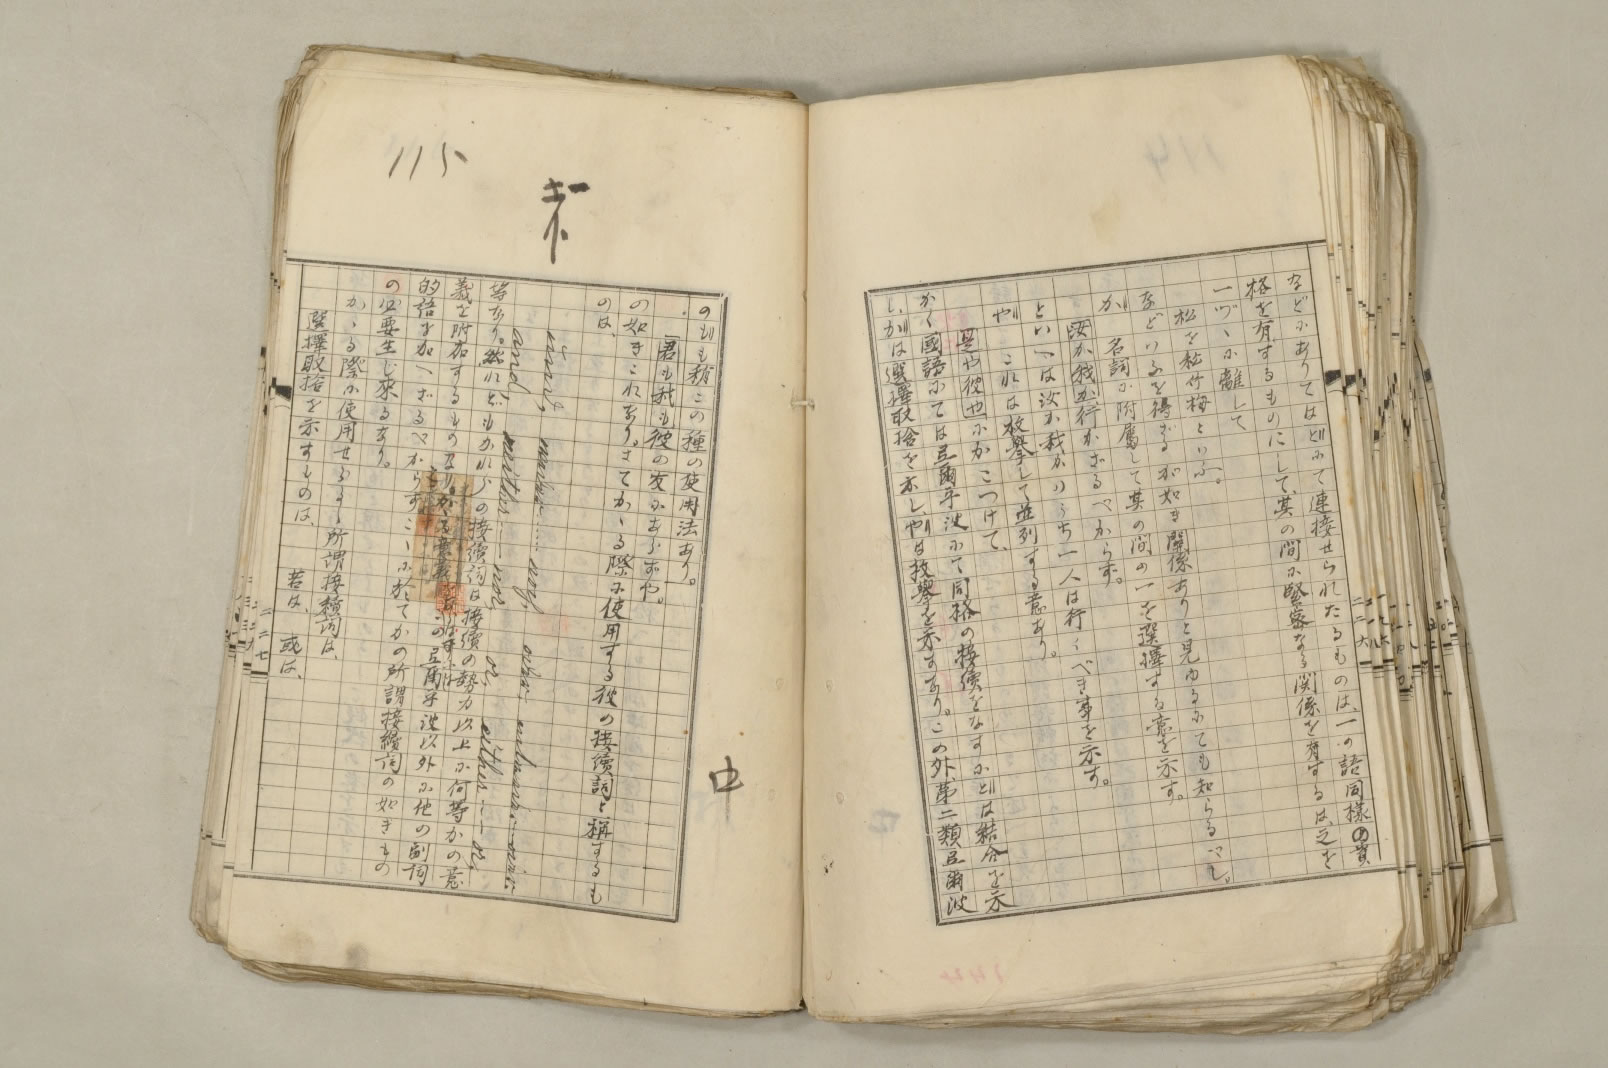 などにありてはどにて連接せられたるものは、一の語同様の資
格を有するものにして其の間に緊密なる関係を有するは之を
一ツヅヽに離して
松を秘竹梅といふ。
などいふを得ざるが如き関係ありと見ゆるにても知らるべし。
が 名詞に附属して其の間の一を選擇する意を示す。
汝か我か行かざるべからず。
といへは汝か我かのうち一人は行くべき事を示す。
や これは枚擧して並列する意あり。
是や彼やにかこつけて、
かく國語にては弖爾乎波にて同格の接續をなすにどは結合を示
し、かは選擇取捨を示し、やは枚擧を示すなり。この外第二類弖爾波
二二六
115
中
のもも稍この種の使用法あり。
君も我も彼の友にあらずや。
の如きこれなり。さてかゝる際に使用する彼の接續詞と稱するも
のは、
and, neither—nor, or, either—or,
等なり。然れどもかれらの接續詞は接續の勢力以上に何等かの意
義を附加するものなり。かゝる意義
的語を加へざるべからずこゝに於てかの所謂接續詞の如きもの
の必要生じ來るなり。
かゝる際に使用せらるゝ所謂接續詞は、
選擇取捨を示すものは、 若は、 或は、
二二七